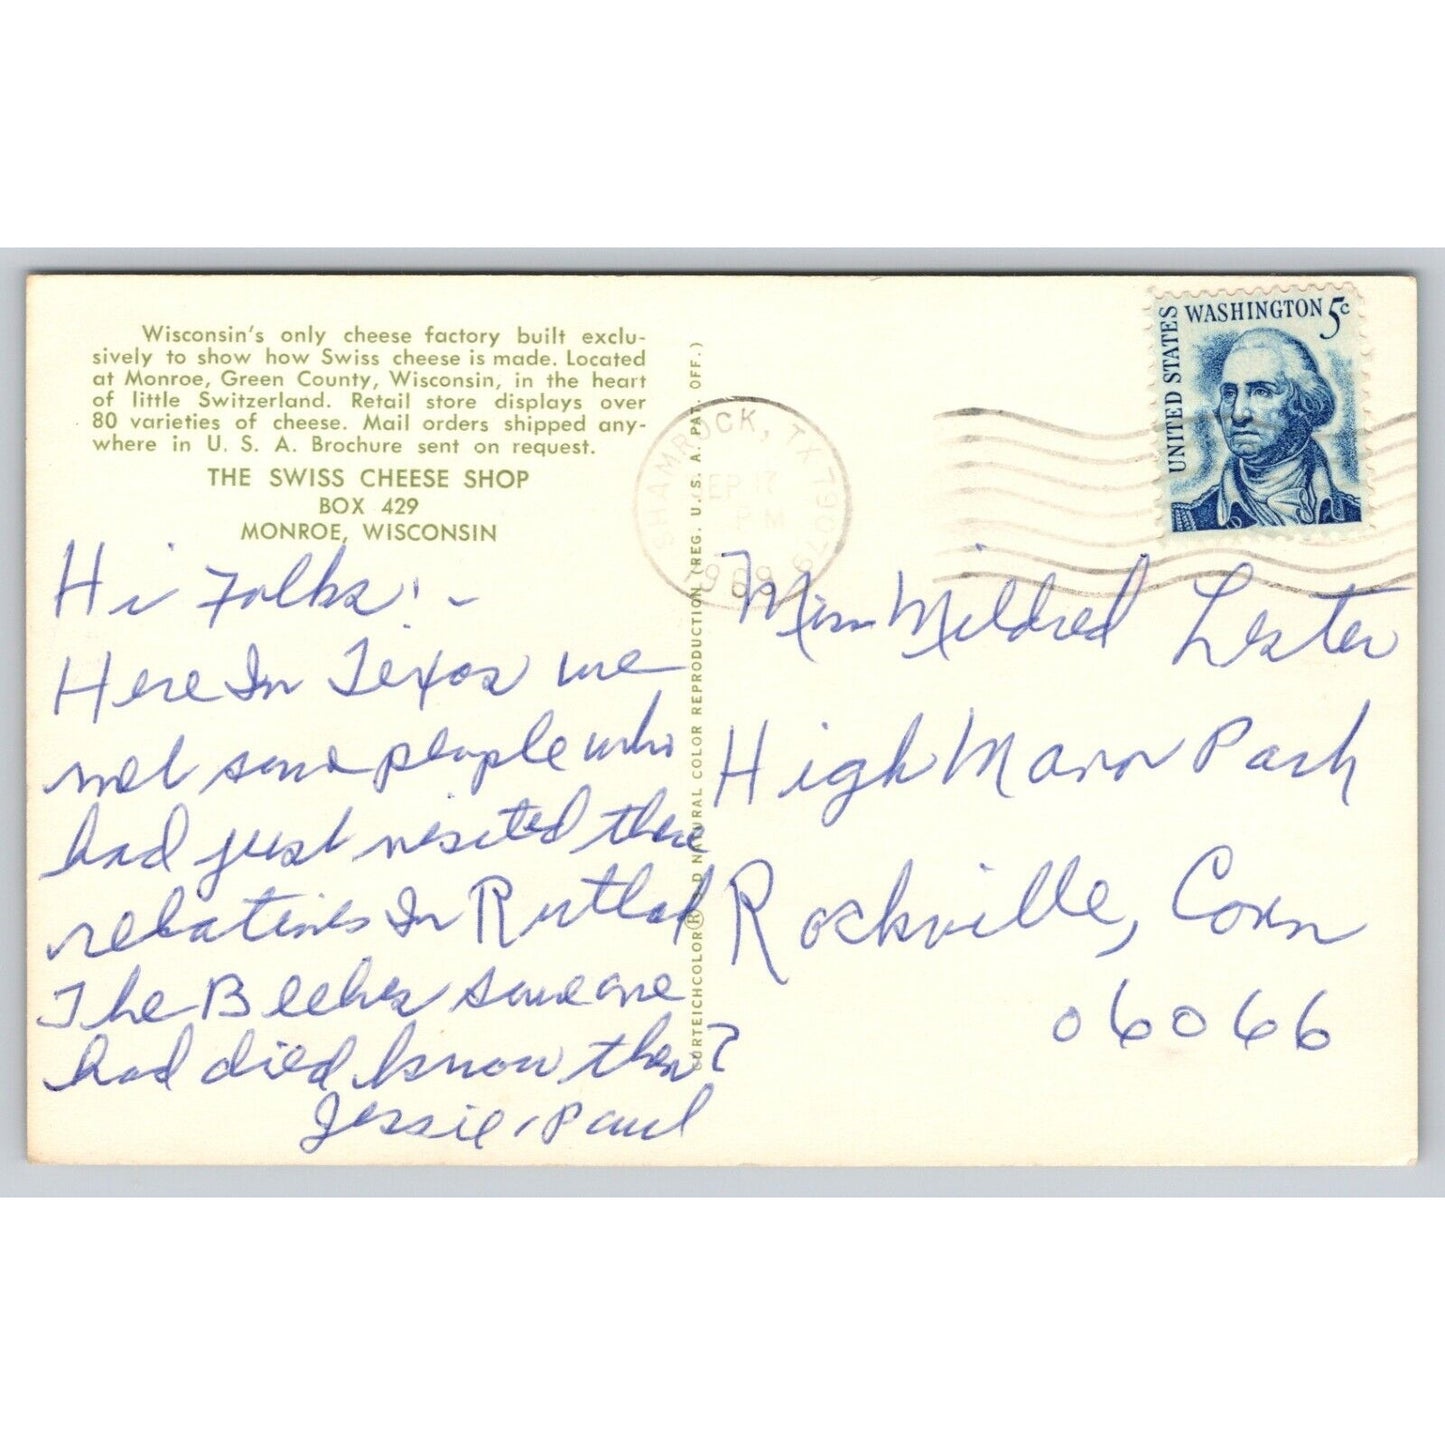 Wisconsin's only cheese factory built exclu-
sively to show how Swiss cheese is made. Located
at Monroe, Green County, Wisconsin, in the heart
of little Switzerland. Retail store displays over
80 varieties of cheese. Mail orders shipped any-
where in U. S. A. Brochure sent on request.
THE SWISS CHEESE SHOP
BOX 429
MONROE, WISCONSIN
Hi Folks! -
Here In Texas we
met some people who
had just visited their
relatives In Rutland
The Beebes someone
had died know them?
Jessie, Paul
CURTEICHCOLOR® 3-D NATURAL COLOR REPRODUCTION (REG. U. S. A. PAT. OFF.)
SHAMROCK, TX 79079
SEP 17
PM
1969
UNITED STATES
WASHINGTON 5c
Miss Mildred Lester
High Manor Park
Rockville, Conn
06066